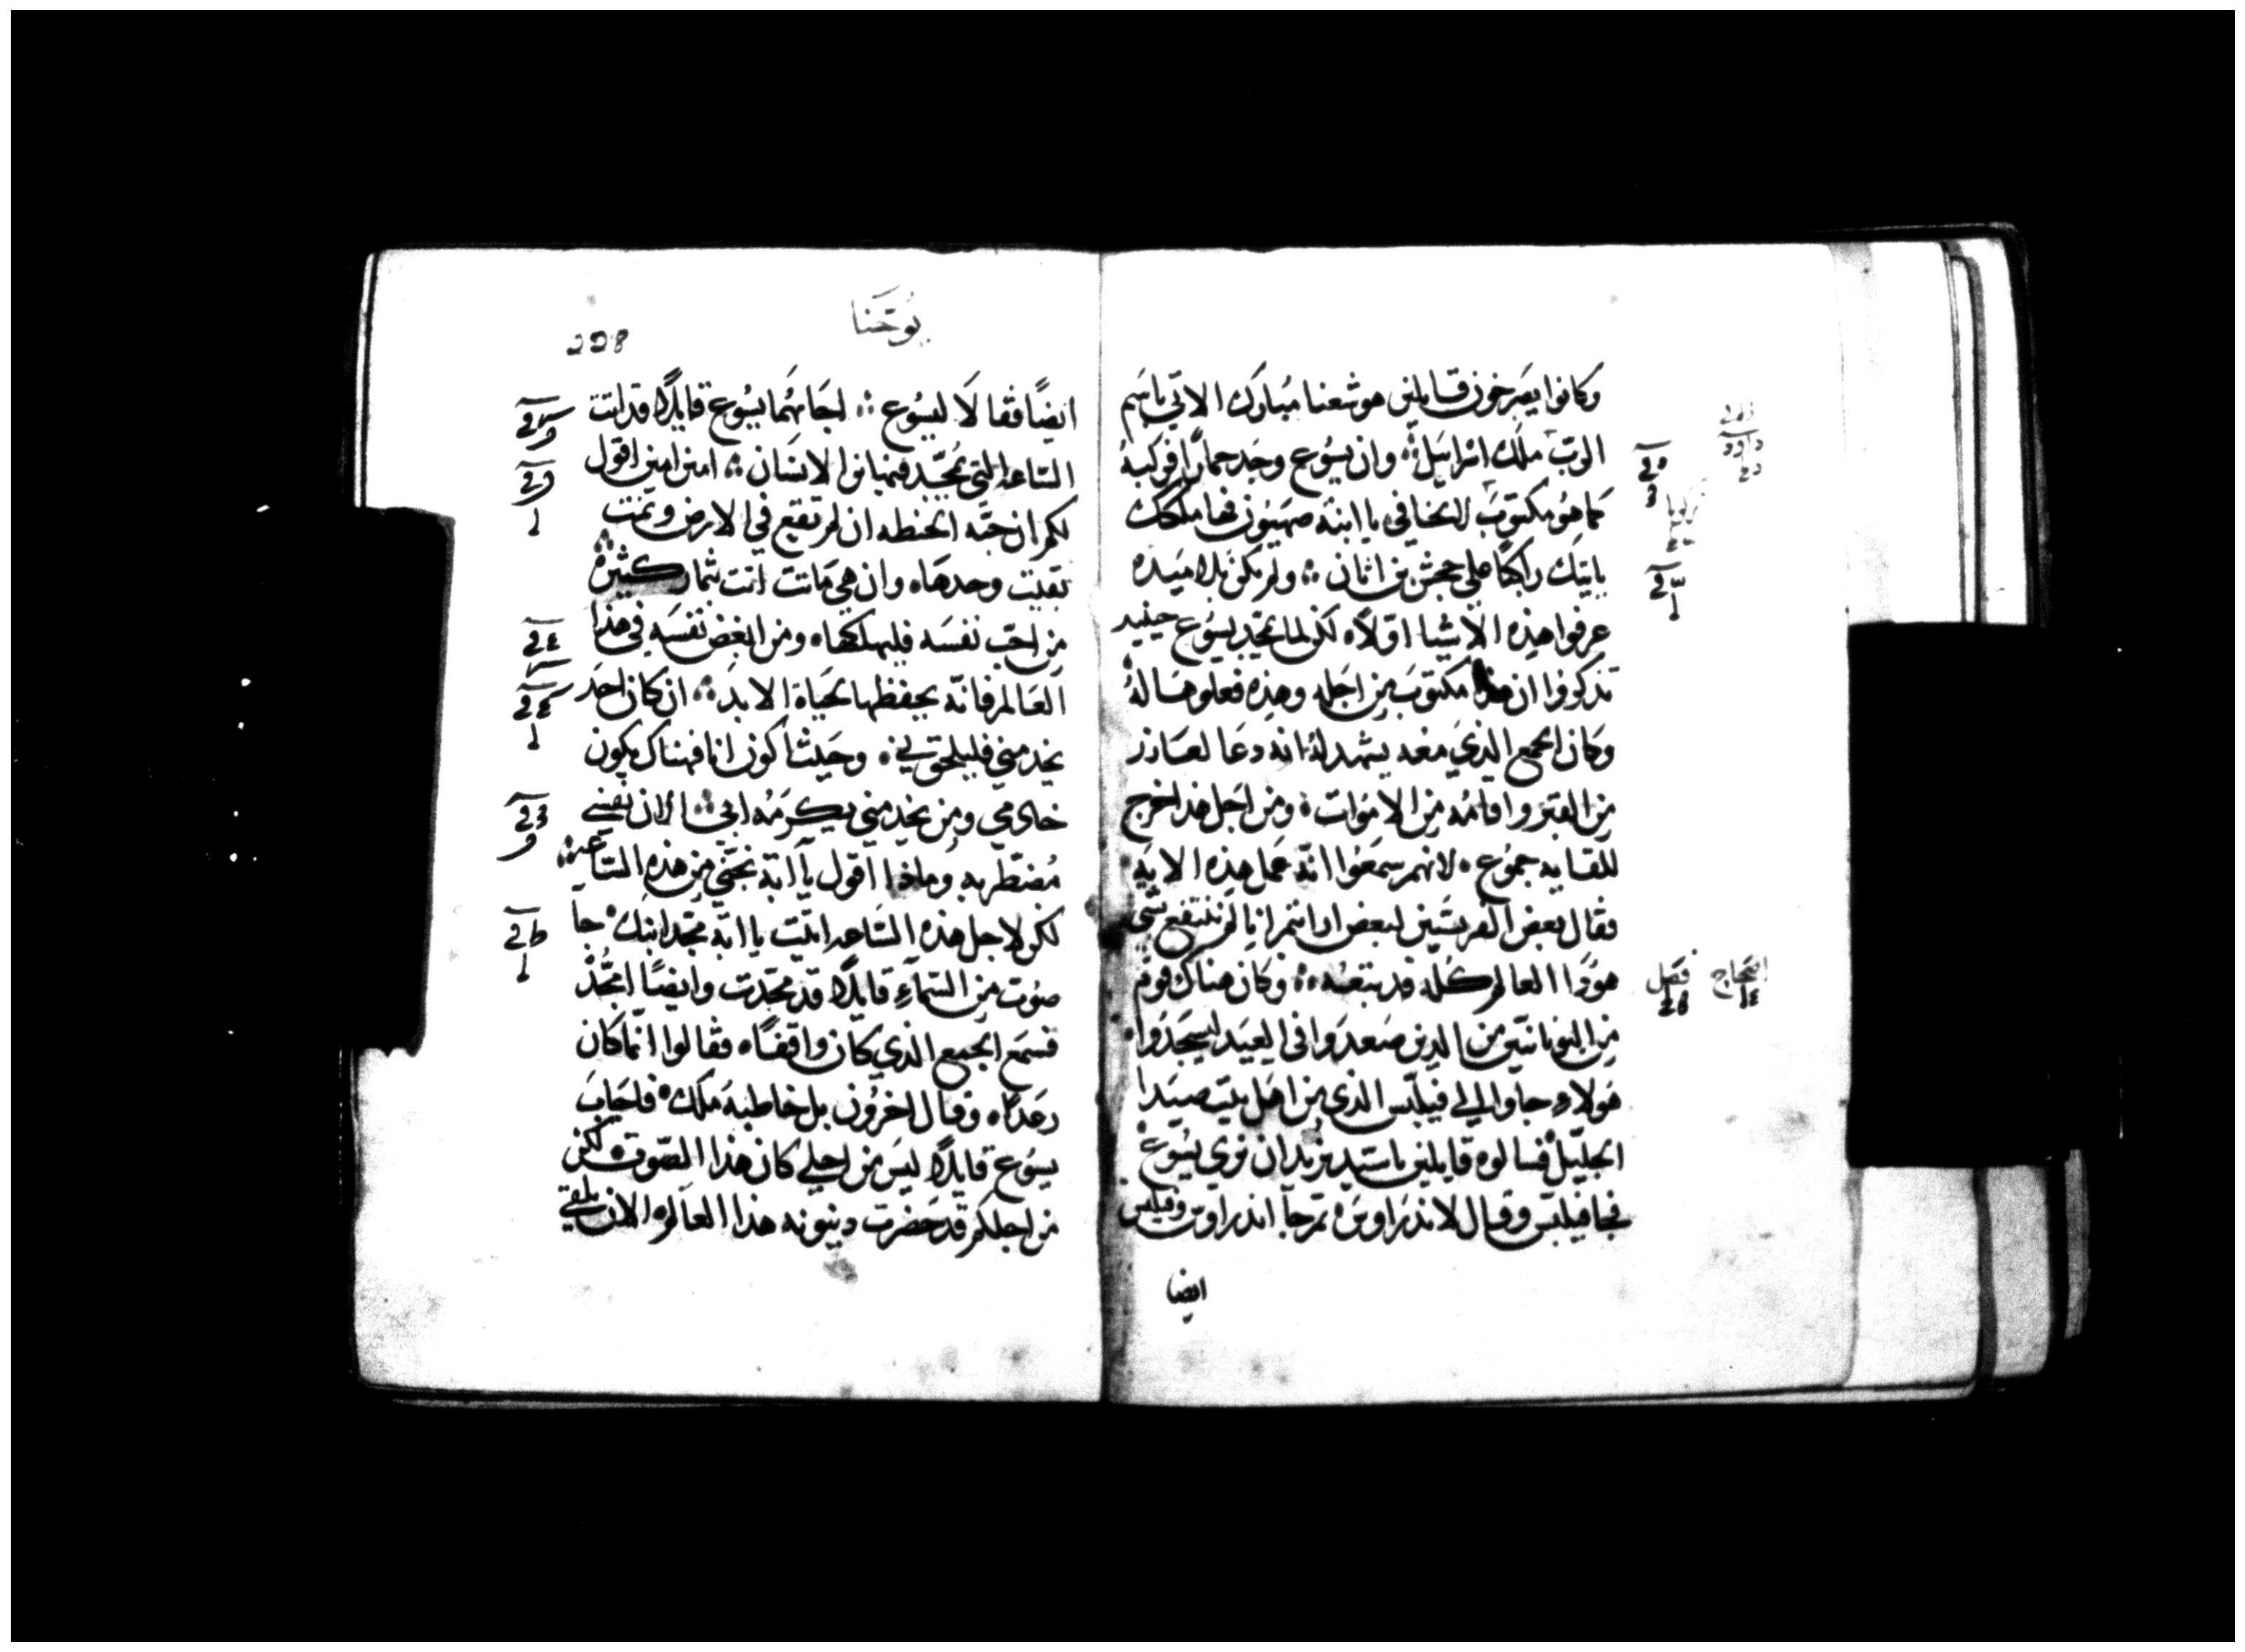 وكانوا يصرخون قايلين هوشعنا مبارك الاتي باسم
الرب ملك اسراييل ⁘ وان يسوع وجد حمارًا فركبهُ
كما هو مكتوب لا تخافي يا ابنة صهيون فها ملكك
ياتيك راكبًا على جحش بن اتان ⁘ ولم يكن تلاميده
عرفوا هذه الاشيا اولاً لكن لما تمجد يسوع حينيد
تدكروا ان هذا مكتوب من اجله وهذه فعلوها لهُ
وكان الجمع الذي معه يشهد لهُ انه دعا لعازر
من القبر واقامهُ من الاموات ⁘ ومن اجل هدا خرج
للقايه جموع ه لانهم سمعوا انهُ عمل هذه الايه
فقال بعض الفريسيين لبعض اد انتم رانا لم ننتفع شي
هودا العالم كله قد تبعه ⁘ وكان هناك قوم
من اليونانيين من الدين صعدوا في العيد ليسجدوا ه
هولاءِ جاوا الى فيلبس الذي من اهل بيت صيدا
الجليل فسالوه قايلين يا سيد نريد ان نري يسوع
فجا فيلبس وقال لاندراوس ه ثم جا اندراوس وفيلبس
ايضا
فصل
اصحاح
يُوحَنا
ايضًا فقالا ليسوع ⁘ اجابهما يسوع قايلاً قد اتت
الساعه التي يمجد فيها بن الانسان ⁘ امين امين اقول
لكم ان حبه الحنطه ان لم تقع في الارض وتمت
بقيت وحدها ه وان هي ماتت اتت بثمار كثيرة
من احب نفسه فليهلكها ه ومن ابغض نفسه في هذا
العالم فانه يحفظها لحياة الابد ⁘ ان كان احد
يخدمني فليلحق بي ه وحيث اكون انا فهناك يكون
خادمي ومن يخدمني يكرمه ابي ⁘ الان نفسي
مُضطربه وماذا اقول يا ابة نجني من هذه الساعه
لكن لاجل هذه الساعه اتيت يا ابة مجد ابنك ه جا
صوت من السماءِ قايلاً قد مجدت وايضًا امجّد
فسمع الجمع الذي كان واقفًا ه فقالوا انما كان
رعدًا ه وقال اخرون بل خاطبه ملك ه فاجاب
يسوع قايلاً ليس من اجلي كان هذا الصوت لكن
من اجلكم قد حضرت دينونه هذا العالم ه الان يلقي